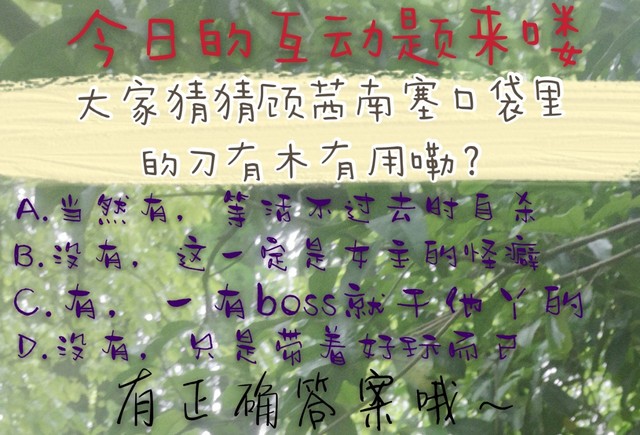 今日的互动题来喽
大家猜猜顾茜南塞口袋里
的刀有木有用嘞？
A.当然有，等活不过去时自杀
B.没有，这一定是女主的怪癖
C.有，一有boss就干他丫的
D.没有，只是带着好玩而已
有正确答案哦～